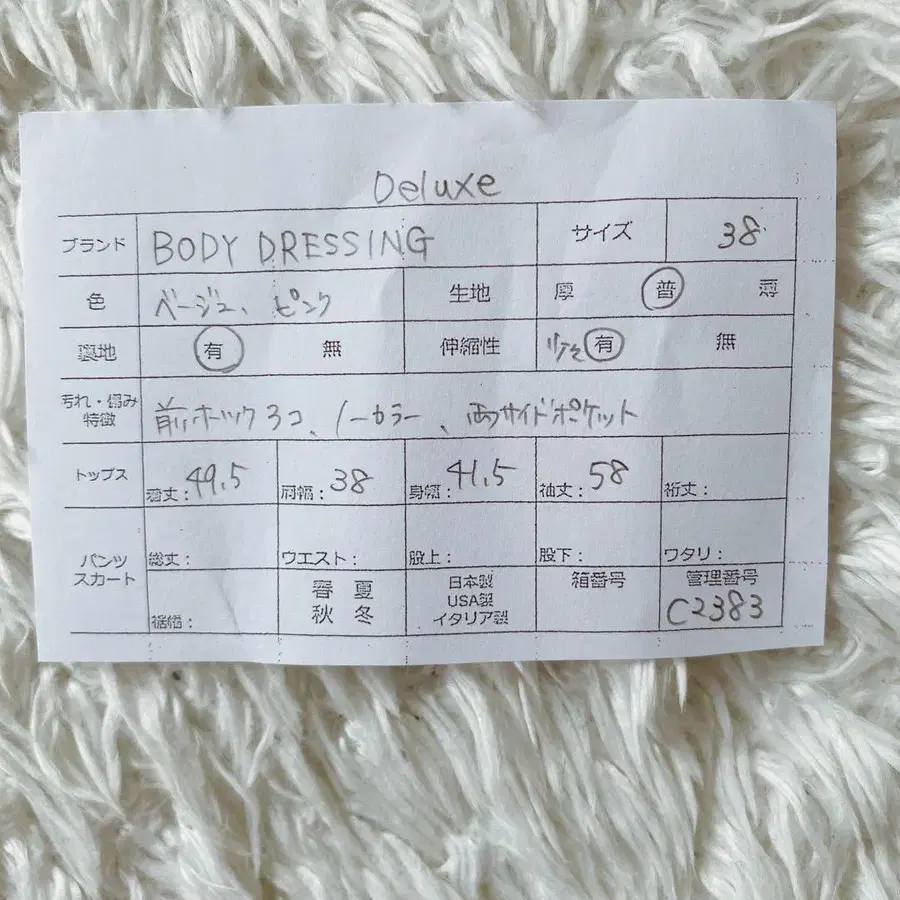 Deluxe
ブランド BODY DRESSING サイズ 38
色 ベージュ、ピンク 生地 厚 普 薄
裏地 有 無 伸縮性 有 無
汚れ・傷み
特徴 前ホック3コ、ノーカラー、両サイドポケット
トップス 着丈:49.5 肩幅:38 身幅:41.5 袖丈:58 裄丈:
パンツ
スカート
総丈: ウエスト: 股上: 股下: ワタリ:
裾幅:
春 夏
秋 冬
日本製
USA製
イタリア製
箱番号
管理番号
C2383